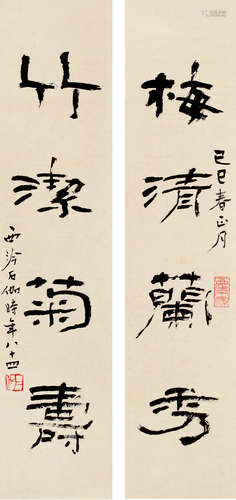 梅清蘭秀
己巳春正月
竹潔菊壽
西泠石伽時年八十四